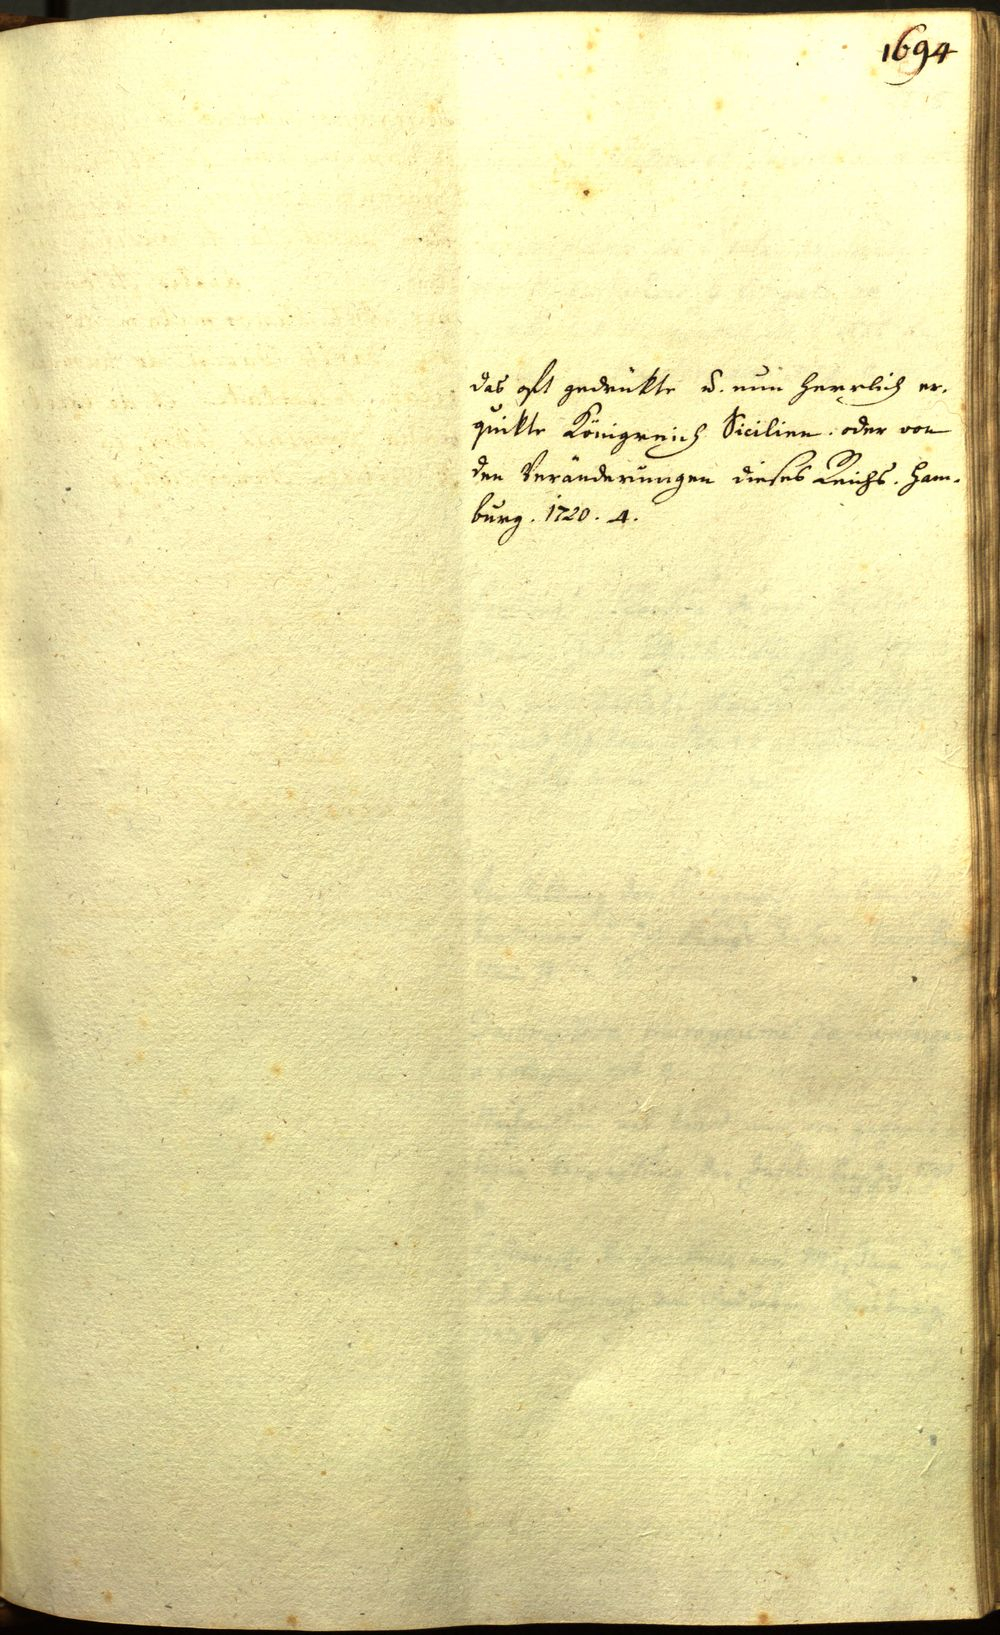 1694
das oft gedrükte u. nun herrlich er-
quikte Königreich Sicilien. oder von
den Veränderungen dieses Reichs. Ham-
burg. 1720. 4.